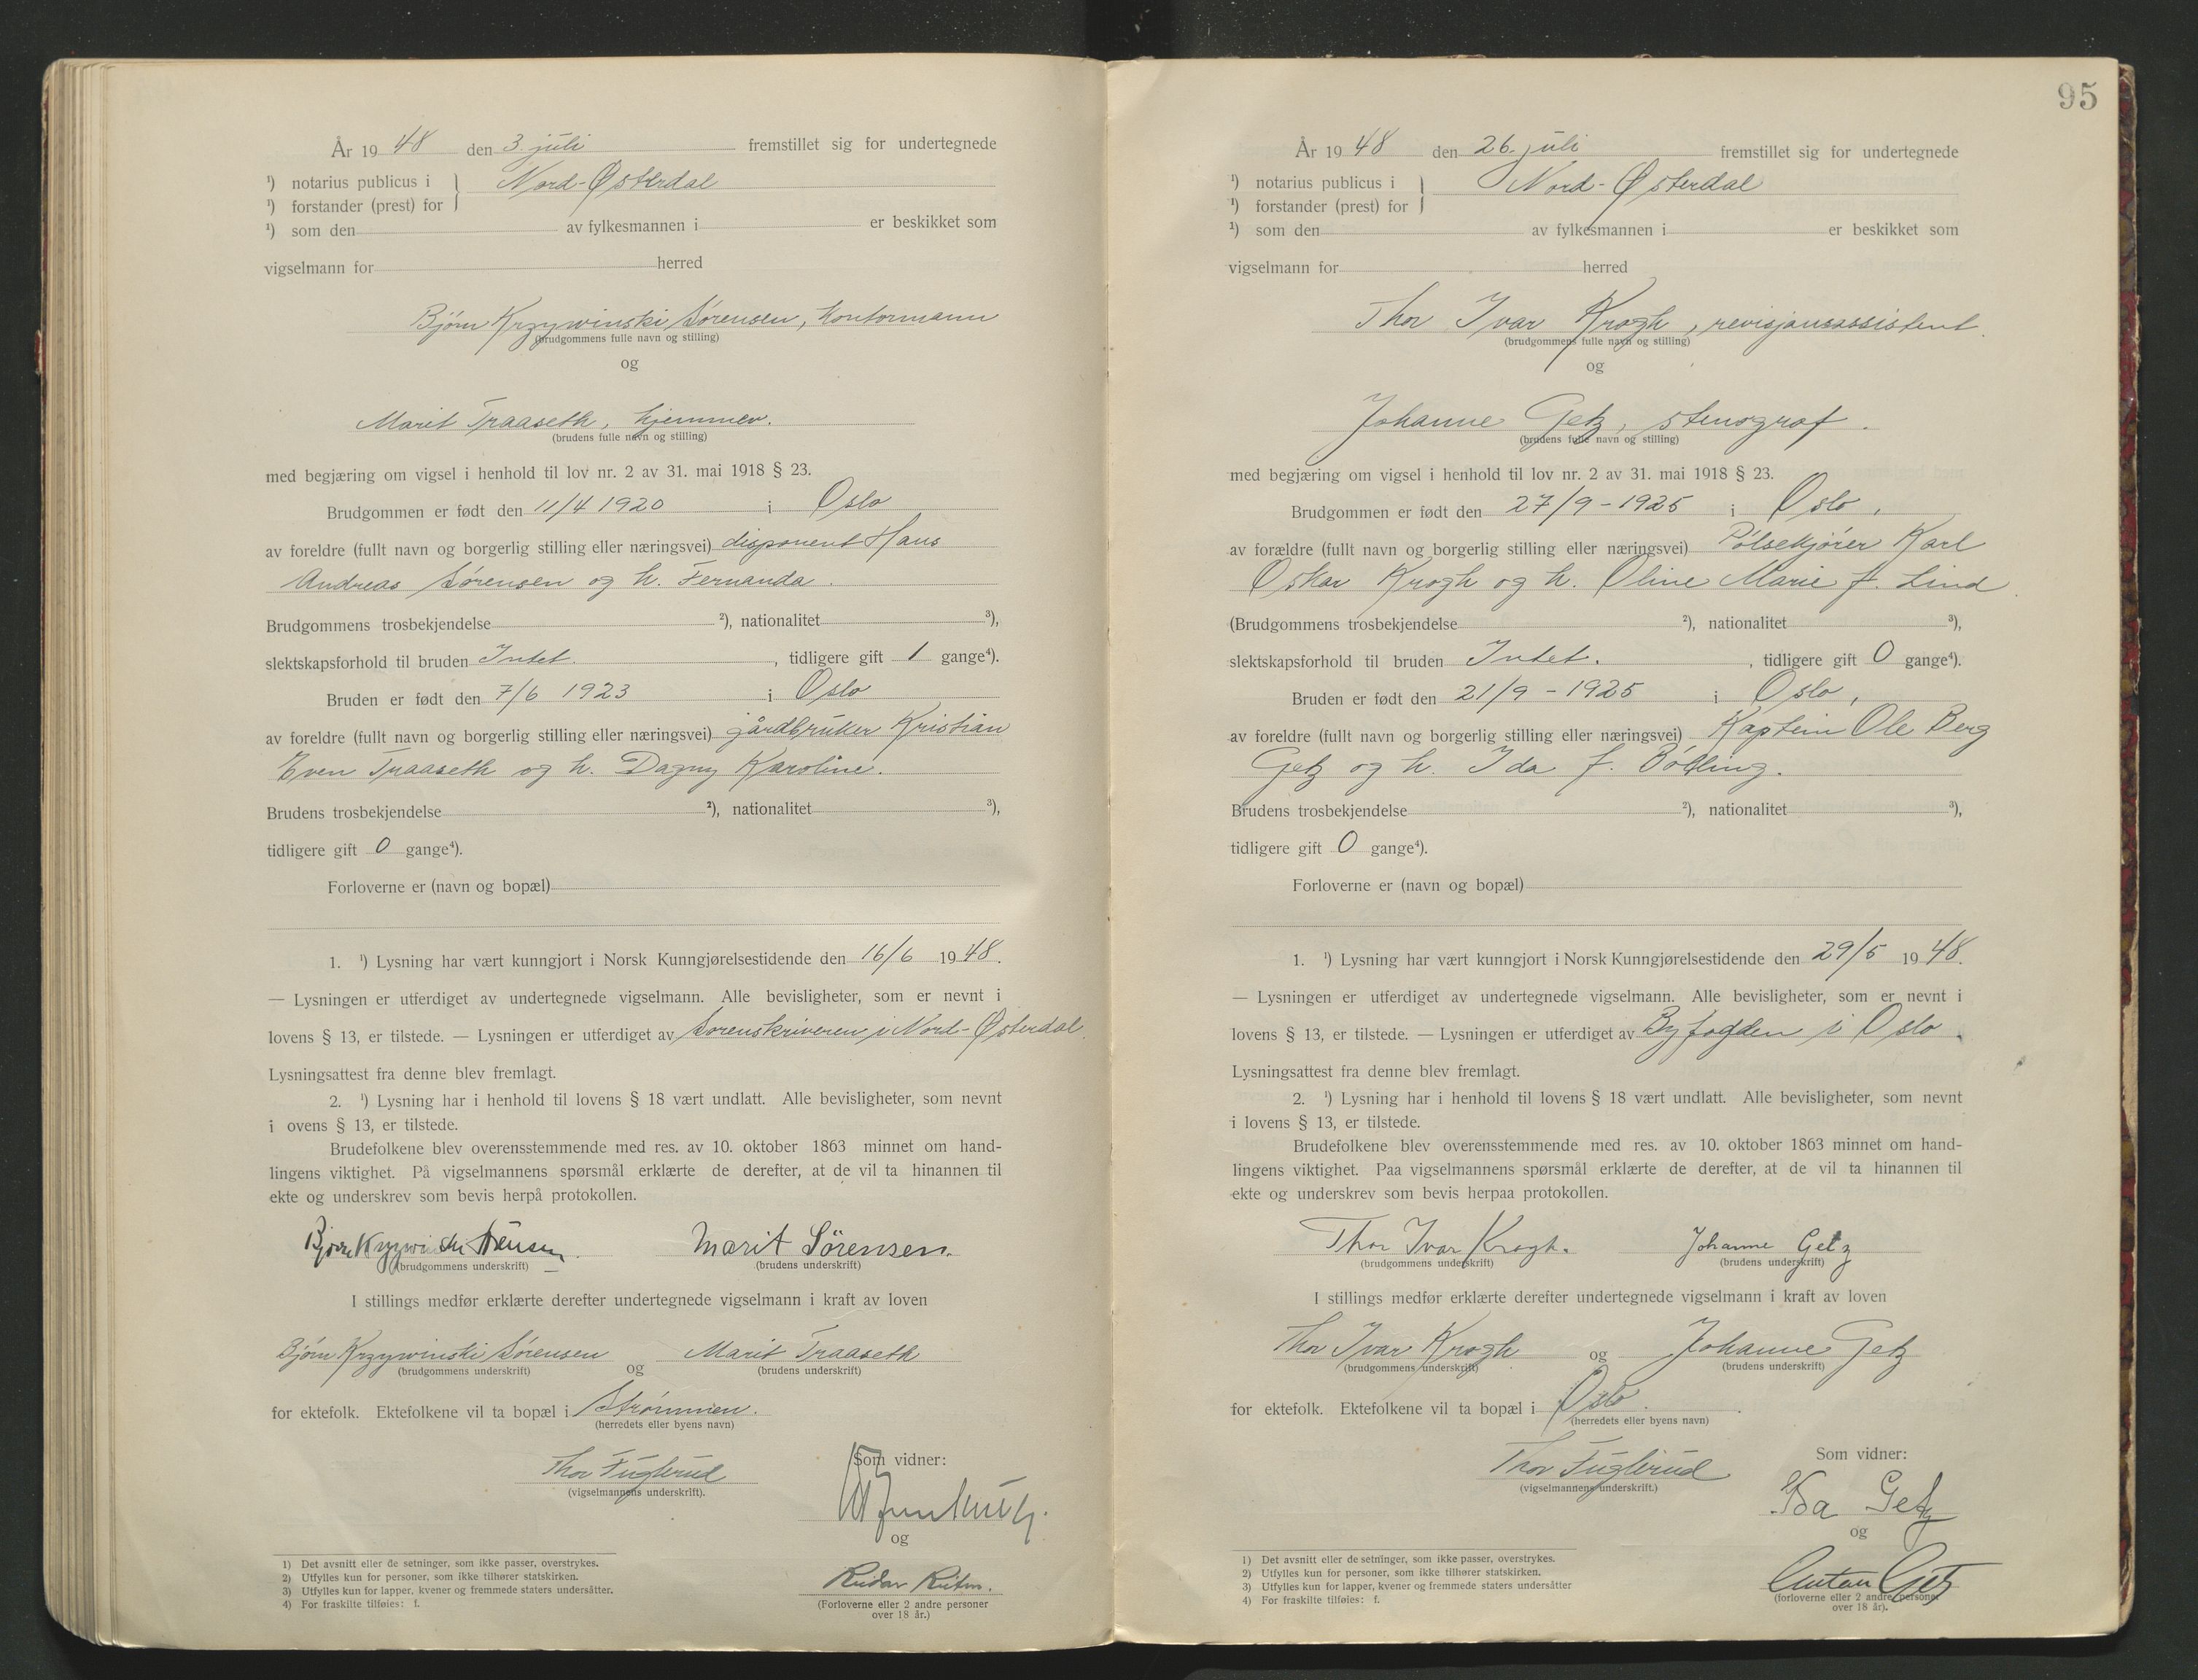 År 1948 den 3. juli fremstillet sig for undertegnede
¹) notarius publicus i } Nord-Østerdal
¹) forstander (prest) for
¹) som den av fylkesmannen i er beskikket som
vigselmann for herred
Bjørn Krzywinski Sørensen, kontormann
(brudgommens fulle navn og stilling)
og
Marit Traaseth, hjemmev.
(brudens fulle navn og stilling)
med begjæring om vigsel i henhold til lov nr. 2 av 31. mai 1918 § 23.
Brudgommen er født den 11/4 1920 i Oslo
av foreldre (fullt navn og borgerlig stilling eller næringsvei) disponent Hans
Andreas Sørensen og h. Fernanda.
Brudgommens trosbekjendelse ²), nationalitet ³),
slektskapsforhold til bruden Intet. , tidligere gift 1 gange⁴).
Bruden er født den 7/6 1923 i Oslo
av foreldre (fullt navn og borgerlig stilling eller næringsvei) gårdbruker Kristian
Even Traaseth og h. Dagny Karoline.
Brudens trosbekjendelse ²), nationalitet ³),
tidligere gift 0 gange⁴).
Forloverne er (navn og bopæl)
1. ¹) Lysning har vært kunngjort i Norsk Kunngjørelsestidende den 16/6 1948.
— Lysningen er utferdiget av undertegnede vigselmann. Alle bevisligheter, som er nevnt i
lovens § 13, er tilstede. — Lysningen er utferdiget av Sorenskriveren i Nord-Østerdal.
Lysningsattest fra denne blev fremlagt.
2. ¹) Lysning har i henhold til lovens § 18 vært undlatt. Alle bevisligheter, som nevnt
i ovens § 13, er tilstede.
Brudefolkene blev overensstemmende med res. av 10. oktober 1863 minnet om hand-
lingens viktighet. På vigselmannens spørsmål erklærte de derefter, at de vil ta hinannen til
ekte og underskrev som bevis herpå protokollen.
Bjørn Krzywinski Sørensen. Marit Sørensen.
(brudgommens underskrift) (brudens underskrift)
I stillings medfør erklærte derefter undertegnede vigselmann i kraft av loven
Bjørn Krzywinski Sørensen og Marit Traaseth
(brudgommens underskrift) (brudens underskrift)
for ektefolk. Ektefolkene vil ta bopæl i Strømmen.
(herredets eller byens navn)
Thor Fuglerud
(vigselmannens underskrift).
Som vidner:
og
Reidar
(Forloverne eller 2 andre personer
over 18 år.)
1) Det avsnitt eller de setninger, som ikke passer, overstrykes.
2) Utfylles kun for personer, som ikke tilhører statskirken.
3) Utfylles kun for lapper, kvener og fremmede staters undersåtter.
4) For fraskilte tilføies: f.
95
År 1948 den 26. juli fremstillet sig for undertegnede
¹) notarius publicus i } Nord-Østerdal
¹) forstander (prest) for
¹) som den av fylkesmannen i er beskikket som
vigselmann for herred
Thor Ivar Krogh, revisjonsassistent.
(brudgommens fulle navn og stilling)
og
Johanne Getz, stenograf.
(brudens fulle navn og stilling)
med begjæring om vigsel i henhold til lov nr. 2 av 31. mai 1918 § 23.
Brudgommen er født den 27/9-1925 i Oslo,
av forældre (fullt navn og borgerlig stilling eller næringsvei) Pølsekjører Karl
Oskar Krogh og h. Oline Marie f. Lind.
(Brudgommens trosbekjendelse ²), nationalitet ³),
slektskapsforhold til bruden Intet. , tidligere gift 0 gange⁴).
Bruden er født den 21/9-1925 i Oslo,
av foreldre (fullt navn og borgerlig stilling eller næringsvei) Kaptein Ole Berg
Getz og h. Ida f. Bølling.
Brudens trosbekjendelse ²), nationalitet ³),
tidligere gift 0 gange⁴).
Forloverne er (navn og bopæl)
1. ¹) Lysning har vært kunngjort i Norsk Kunngjørelsestidende den 29/5 1948.
— Lysningen er utferdiget av undertegnede vigselmann. Alle bevisligheter, som er nevnt i
lovens § 13, er tilstede. — Lysningen er utferdiget av Byfogden i Oslo.
Lysningsattest fra denne blev fremlagt.
2. ¹) Lysning har i henhold til lovens § 18 vært undlatt. Alle bevisligheter, som nevnt
i lovens § 13, er tilstede.
Brudefolkene blev overensstemmende med res. av 10. oktober 1863 minnet om hand-
lingens viktighet. Paa vigselmannens spørsmål erklærte de derefter, at de vil ta hinannen til
ekte og underskrev som bevis herpaa protokollen.
Thor Ivar Krogh. Johanne Getz
(brudgommens underskrift) (brudens underskrift)
I stillings medfør erklærte derefter undertegnede vigselmann i kraft av loven
Thor Ivar Krogh og Johanne Getz
(brudgommens underskrift) (brudens underskrift)
for ektefolk. Ektefolkene vil ta bopæl i Oslo.
(herredets eller byens navn)
Thor Fuglerud
(vigselmannens underskrift.)
Som vidner:
Ida Getz
og
Anton Getz
(forloverne eller 2 andre personer
over 18 år).
1) Det avsnitt eller de setninger, som ikke passer, overstrykes.
2) Utfylles kun for personer, som ikke tilhører statskirken.
3) Utfylles kun for lapper, kvener og fremmede staters undersåtter
4) For fraskilte tilføies: f.